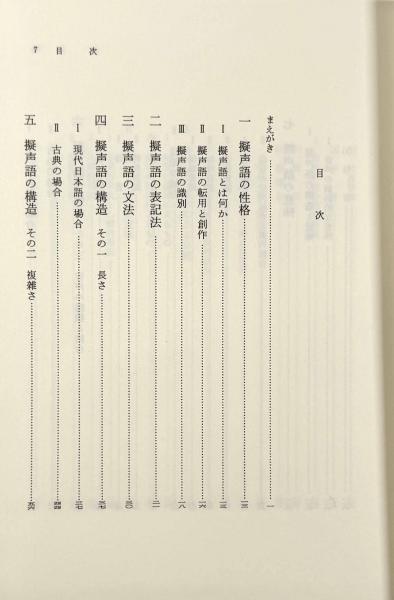 7 目次
目次
まえがき……一
一 擬声語の性格……一三
Ⅰ 擬声語とは何か……一三
Ⅱ 擬声語の転用と創作……一六
Ⅲ 擬声語の識別……一八
二 擬声語の表記法……二一
三 擬声語の文法……三〇
四 擬声語の構造 その一 長さ……三七
Ⅰ 現代日本語の場合……三七
Ⅱ 古典の場合……
五 擬声語の構造 その二 複雑さ……